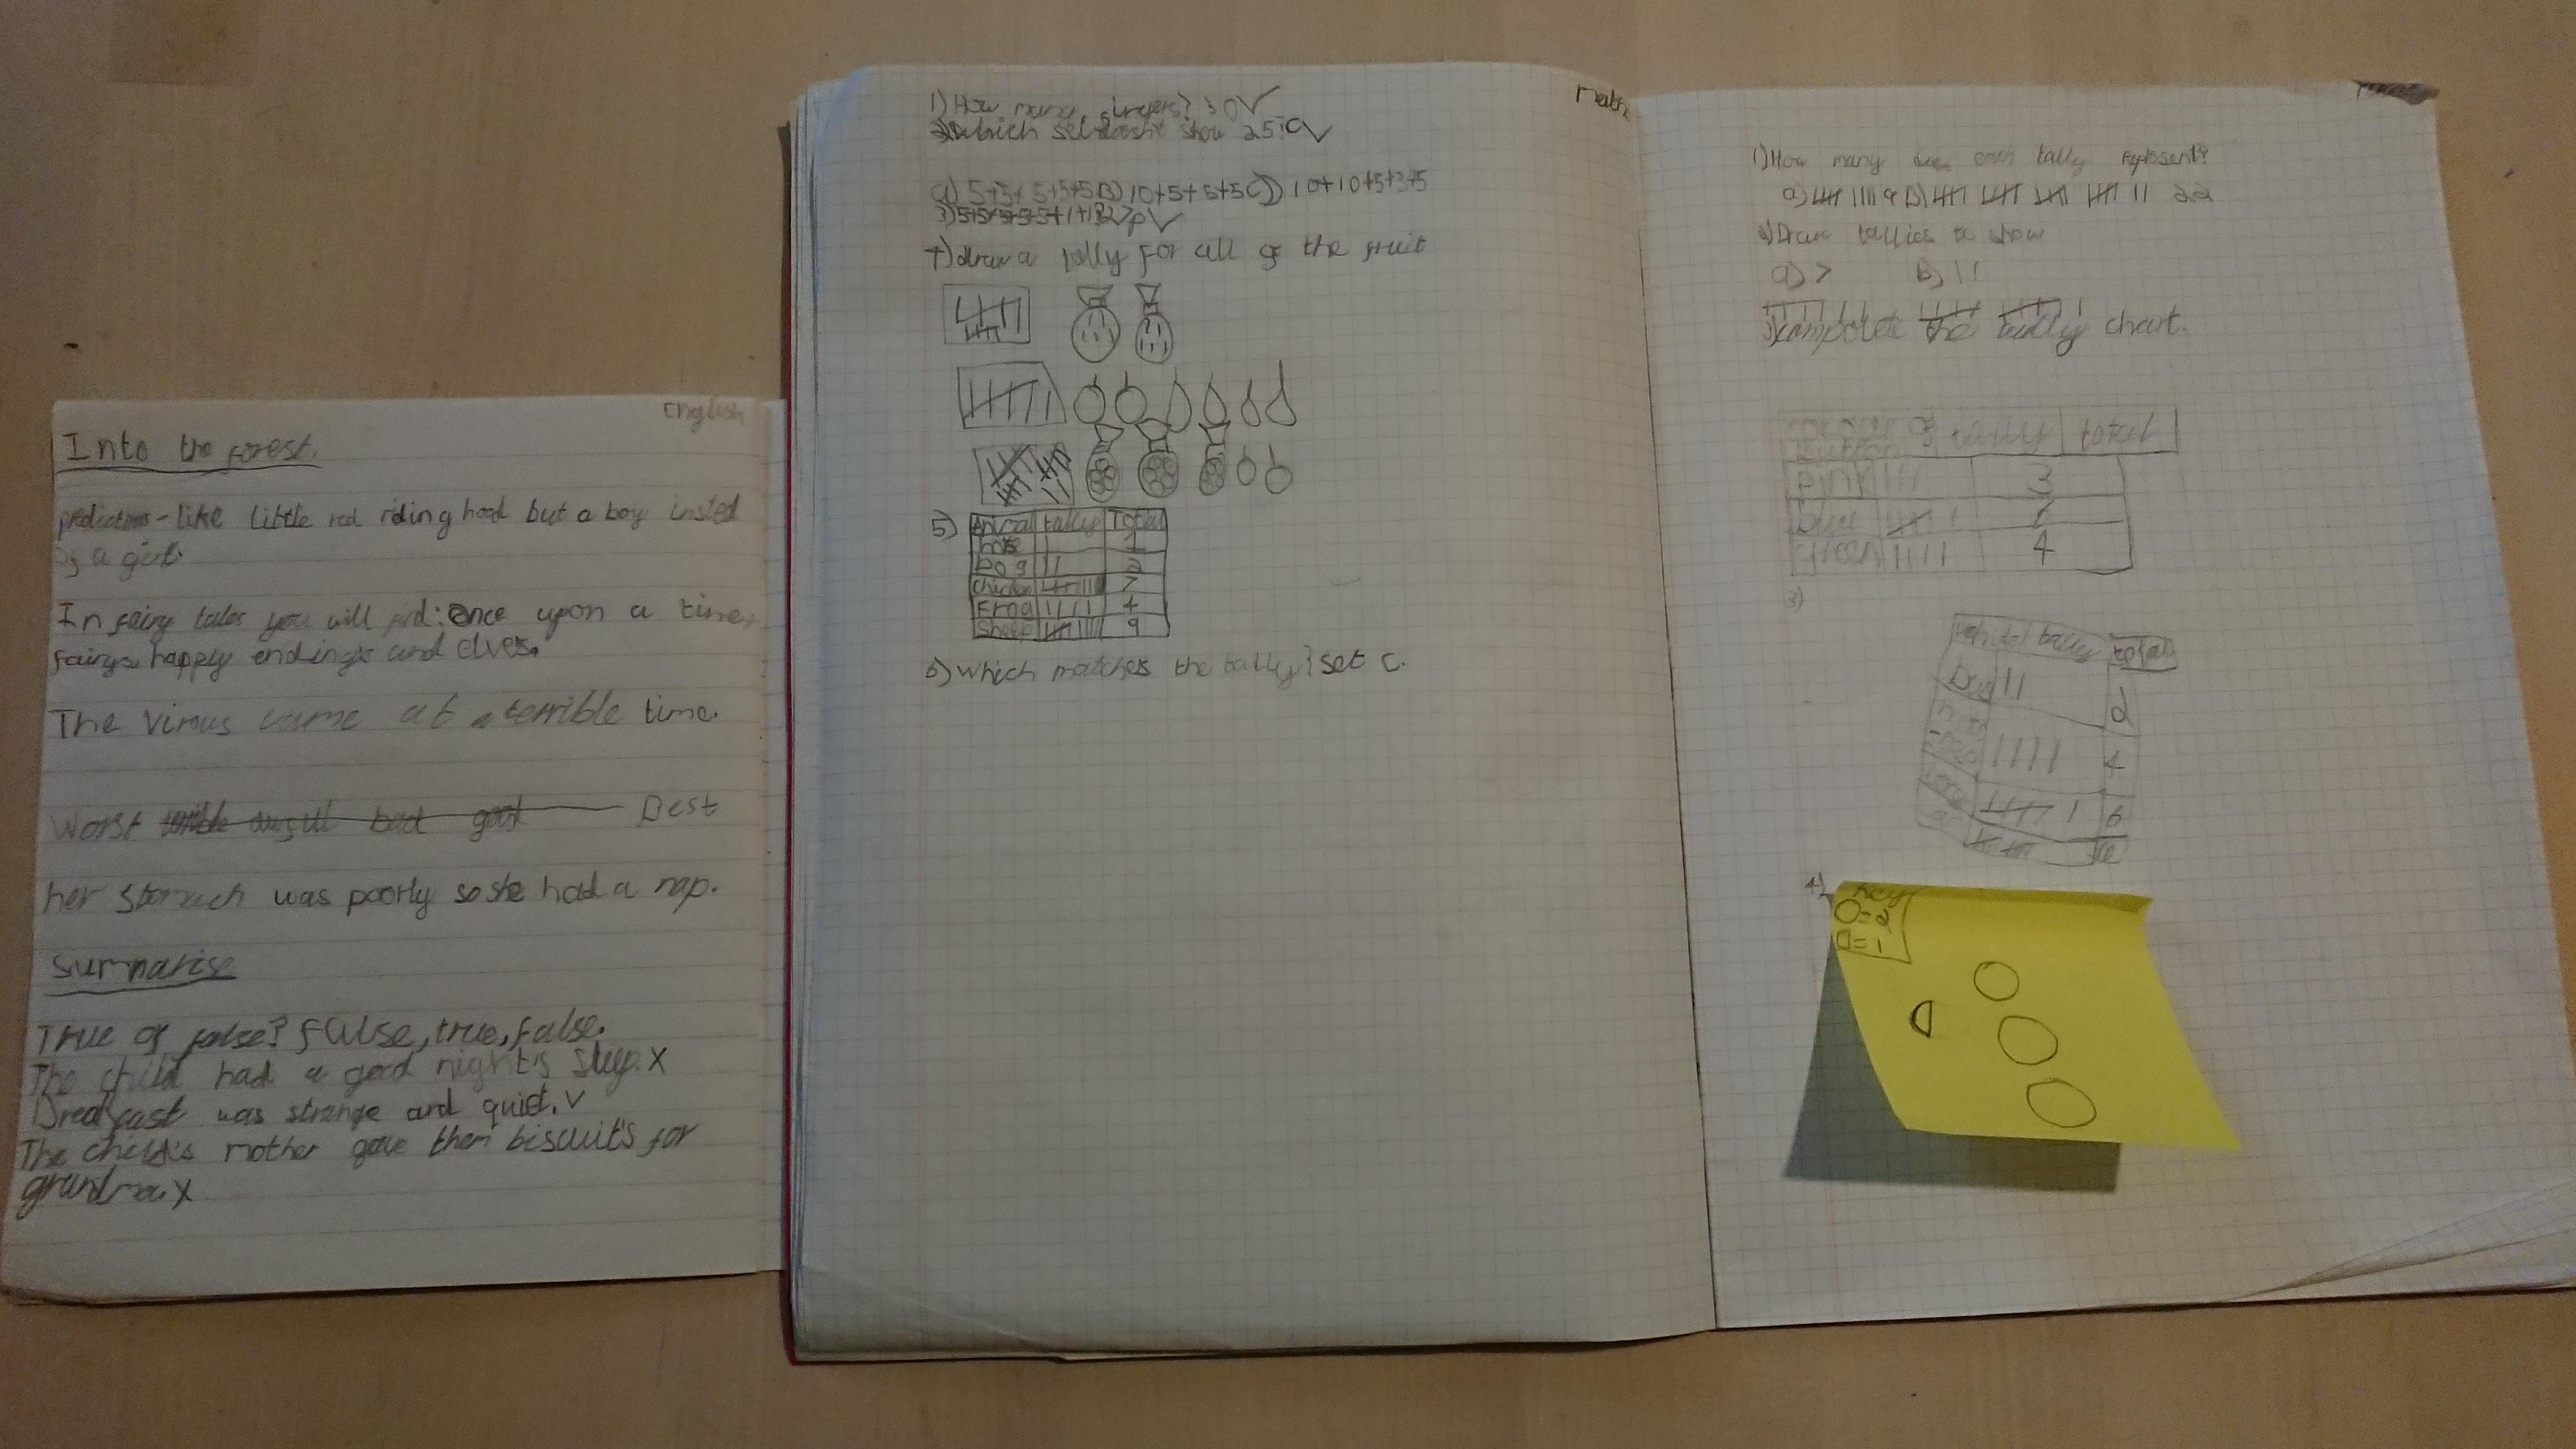 English
Into the forest.
predictions-like little red riding hood but a boy insted
of a girl.
In fairy tales you will find: Once upon a time,
fairys happy ending's and elves.
The virous came at a terrible time.
Worst terrible awfull bad good Best
her stomach was poorly so she had a nap.
Summarise
True or false? false, true, false.
The child had a good night's sleep. x
Breakfast was strange and quiet. v
The child's mother gave them biscuit's for
grandma x
Maths
1) How many fingers? 30 ✓
2) Which set doesn't show 25? a ✓
a) 5+5+5+5+5 B) 10+5+5+5 C) 10+10+5+5+5
4) draw a tally for all of the fruit
5) Animal tally Total
1
Dog 2
chicken 7
Frog 4
Sheep 9
6) Which matches the tally? set C.
1) How many does each tally represent?
a) 9 B) 22
2) Draw tallies to show
a) 7 b) 11
3) complete the tally chart.
button tally total
pink 3
blue 6
green 4
3)
vehicle tally total
Bus 2
4
6
10
4)
key
O=2
D=1